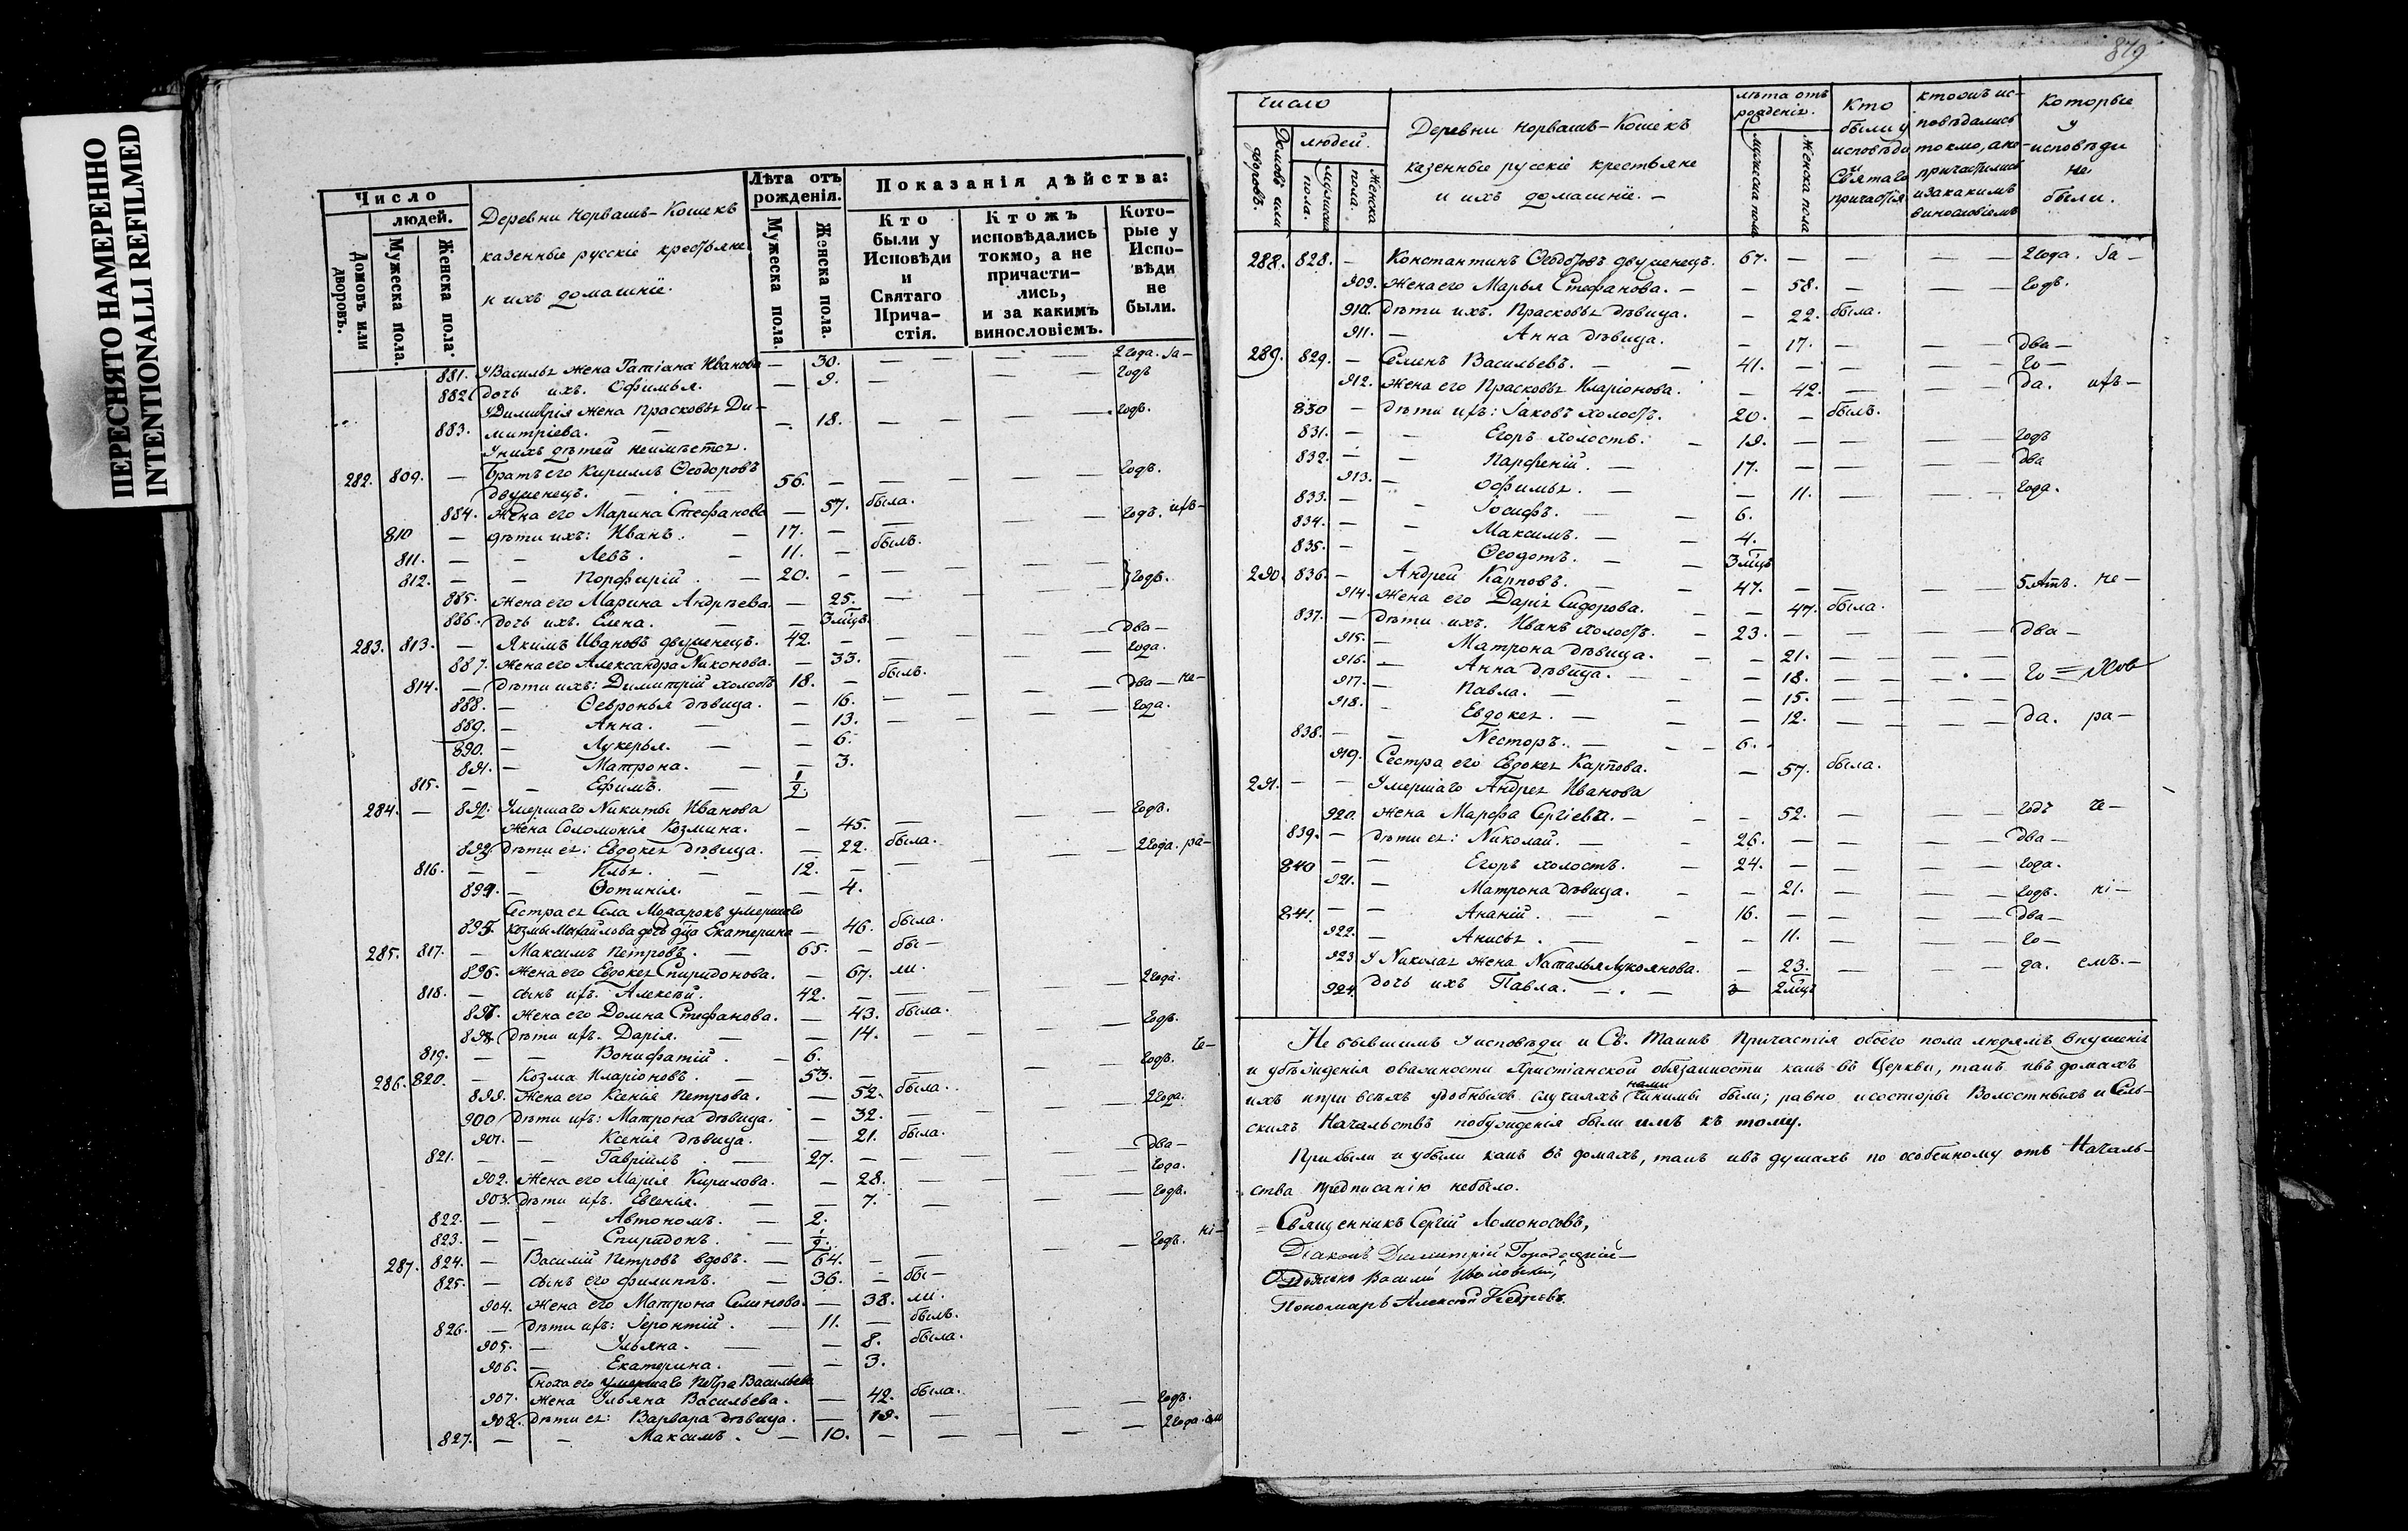 ПЕРЕСНЯТО НАМЕРЕННО
INTENTIONALLI REFILMED
Число
людей.
Домовъ или дворовъ.
Мужеска пола.
Женска пола.
Деревни Норвашъ-Кошекъ
казенные русскіе крестьяне
и ихъ домашніе.
Лѣта отъ рожденія.
Мужеска пола.
Женска пола.
Показанія дѣйства:
Кто были у Исповѣди и Святаго Прича-стія.
Ктожъ исповѣдались токмо, а не причасти-лись, и за какимъ винословіемъ.
Кото-рые у Испо-вѣди не были.
881. У Василья жена Татіана Иванова — 30. — — — — 2 года. За —
882. дочь ихъ. Офимья. — 9. — — — годъ
У Димитрія жена Прасковья Ди-
883. митріева. — — 18. — — — годъ.
У нихъ дѣтей неимѣется.
282. 809. — Братъ его Кириллъ Ѳеодоровъ 56. — — — годъ.
двуженецъ.
884. жена его Марина Стефанова — 57. была.
810 — дѣти ихъ: Иванъ. — 17. — — — годъ. ихъ —
811. — — Левъ. — 11. — былъ.
812. — — Порфирій. — 20. — — — годъ.
885. жена его Марина Андрѣева. — 25. —
886. дочь ихъ. Елена. — — 3 мцъ.
283. 813. — Якимъ Ивановъ двуженецъ. 42. — — — два —
887. жена его Александра Никонова. — 33. — — года.
814. — дѣти ихъ: Димитрій холостъ 18. — былъ.
888. — Ѳевронья дѣвица. — 16. — — два — не —
889. — Анна. — — 13. — — года.
890. — Лукерья. — — 6.
891. — Матрона. — — 3.
815. — — Ефимъ. — 1/2.
284. — 892. Умершаго Никиты Иванова
жена Соломонія Козмина. — 45. — — годъ.
893. дѣти ея: Евдокея дѣвица. — 22. была.
816. — — Илья. — 12. — — — 2 года. ра —
894. — Ѳотинія. — — 4.
Сестра ея Села Можарокъ умершаго
895. Козмы Михайлова дочь дѣца Екатерина — 46. была.
285. 817. — Максимъ Петровъ. — 65. — бы —
896. жена его Евдокея Спиридонова. — 67. ли.
818. — сынъ ихъ. Алексѣй. 42. — — — 2 года.
897. жена его Домна Стефанова. — 43. была.
898. дѣти ихъ. Дарія. — — 14. — — годъ.
819. — — Вонифатій. — 6. че —
286. 820. — Козма Иларіоновъ. — 53. — — — годъ.
899. жена его Ксенія Петрова. — 52. была.
900 дѣти ихъ: Матрона дѣвица. — 32. — — 2 года.
901. — Ксенія дѣвица. — 21. была.
821. — — Гавріилъ. — 27. — — — два —
902. жена его Марія Кирилова. — 28. — — года.
903. дѣти ихъ. Евгенія. — — 7. — — годъ.
822. — — Автономъ. — 2.
823. — — Спиридонъ. — 1/2.
287. 824. — Василій Петровъ вдовъ. — 64. — — — годъ. кі —
825. — сынъ его Филиппъ. — 36. — бы —
904. жена его Матрона Семенова. — 38. ли.
826. — дѣти ихъ: Геронтій. — 11. — былъ.
905. — Ульяна. — — 8. была.
906. — Екатерина. — — 3.
Сноха его умершаго Петра Васильева
907. жена Ульяна Васильева. — 42. была.
908. дѣти ея: Варвара дѣвица. — 19. — — годъ.
827. — — Максимъ. — 10. — — — 2 года.
879
Число
людей.
Домовъ или дворовъ.
Мужеска пола.
Женска пола.
Деревни Норвашъ-Кошекъ
казенные русскіе крестьяне
и ихъ домашніе. —
лѣта отъ рожденія.
Мужеска пола
Женска пола
Кто были у исповѣди и Святаго причастія
ктожъ ис-повѣдались токмо, а не причастились и за какимъ винословіемъ
Которые у исповѣди не были.
288. 828. — Константинъ Ѳеодоровъ двуженецъ. 67. — — — — 2 года. За —
909. жена его Марья Стефанова. — — 58. — — — годъ.
910. дѣти ихъ. Прасковья дѣвица. — 22. была.
911. — Анна дѣвица. — 17. — — — два —
289. 829. — Семенъ Васильевъ. — — 41. — — — — го —
912. жена его Прасковья Иларіонова. — 42. — — — да. ихъ —
830 — дѣти ихъ: Іаковъ холостъ. 20. — былъ.
831. — — Егоръ холостъ. — 19. — — — годъ
832. — — Парфеній. — 17. — — — два
913. — Офимья. — — 11. — — года.
833. — — Іосифъ. — — 6.
834. — — Максимъ. — — 4.
835. — — Ѳеодотъ. — — 3 мцъ
290. 836. — Андрей Карповъ. — — 47. — — — 5 лѣтъ. не —
914. жена его Дарія Сидорова. — — 47. была.
837. — дѣти ихъ. Иванъ холостъ. — 23. — — — два —
915. — Матрона дѣвица. — — 21. — —
916. — Анна дѣвица. — — 18. — — го —
917. — Павла. — — — 15. — —
918. — Евдокея. — — — 12. — — да. ра —
838. — — Несторъ. — — 6. —
919. Сестра его Евдокея Карпова. — 57. была.
291. — — Умершаго Андрея Иванова
920. жена Марфа Сергіева. — — 52. — — годъ че —
839. — дѣти ея: Николай. — — 26. — — — два —
840 — — Егоръ холостъ. — 24. — — — года.
921. — Матрона дѣвица. — — 21. — — годъ. кі —
841. — — Ананій. — — 16. — — — два —
922. — Анисья. — — — 11. — — го —
923 У Николая жена Наталья Лукоянова. — 23. — — да. емъ. —
924. дочь ихъ Павла. — — 2 мцъ
Не бывшимъ у исповѣди и Св. Таинъ Причастія обоего пола людямъ внушенія
и убѣжденія о важности Христіанской обязанности какъ въ Церкви, такъ и въ домахъ
ихъ и при всѣхъ удобныхъ случаяхъ нами чинимы были; равно и состороы Волостныхъ и Сель-
скихъ Начальствъ побужденія были имъ къ тому.
Прибыли и убыли какъ въ домахъ, такъ и въ душахъ по особенному отъ Началь-
ства предписанію небыло.
Священникъ Сергій Ломоносовъ,
Діаконъ Димитрій
Василій
Пономарь Алексѣй